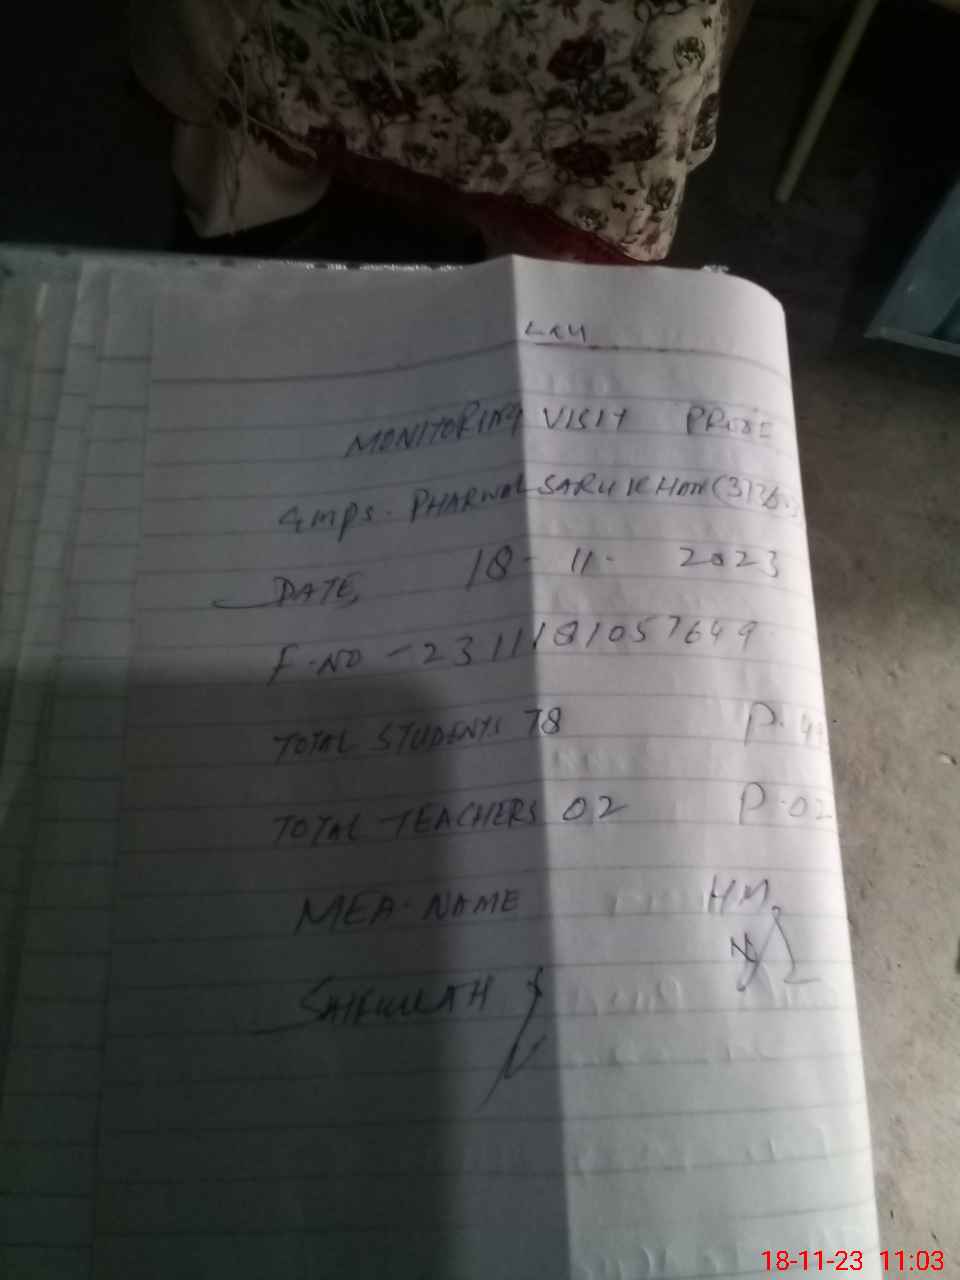 MONITORING VISIT PROBE
GMPS. PHARWAL SARU KHAN
DATE, 18-11-2023
F.NO - 2311181057649
TOTAL STUDENTS 78 P.
TOTAL TEACHERS 02 P.02
MEA. NAME HM
SAIFULLAH
18-11-23 11:03